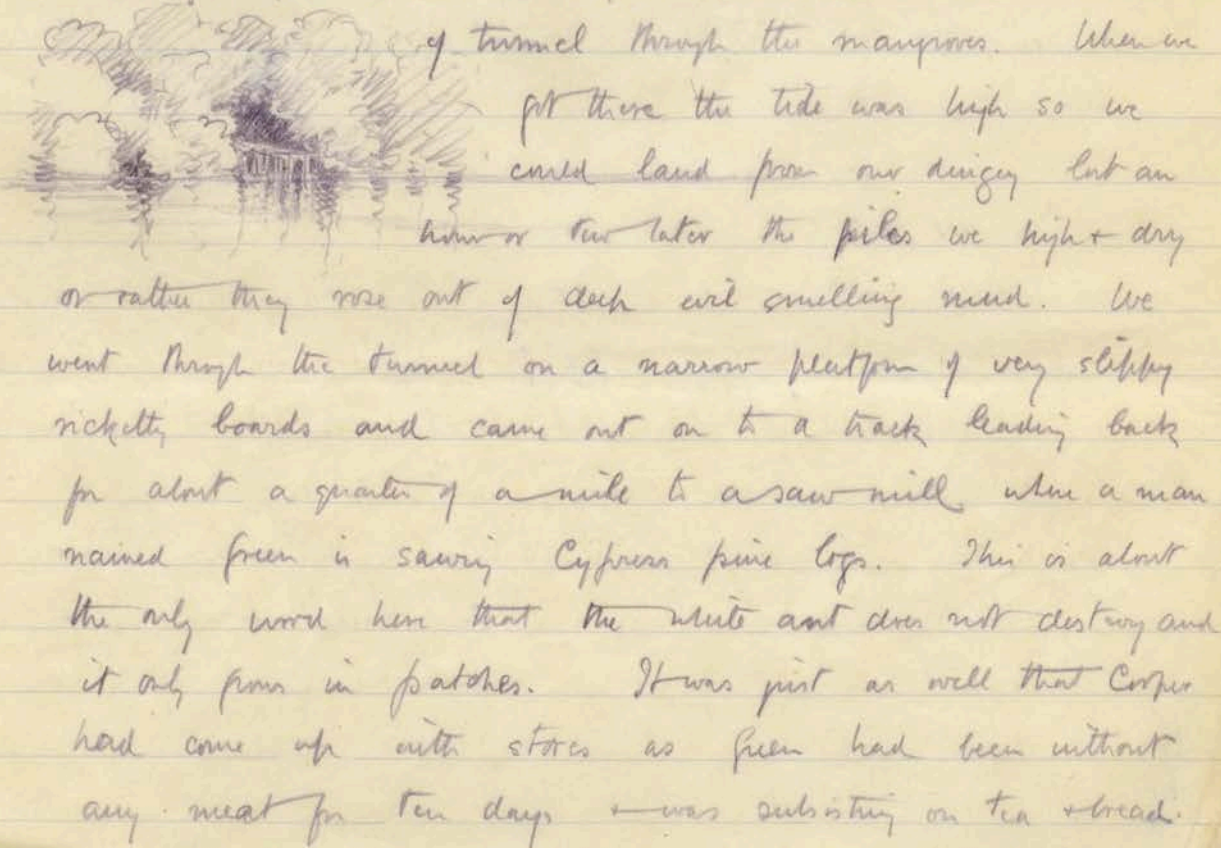 of tunnel through the mangroves. When we
got there the tide was high so we
could land from our dingey but an
hour or two later the piles we high & dry
or rather they rose out of deep evil smelling mud. We
went through the tunnel on a narrow platform of very slippy
ricketty boards and came out on to a track leading back
for about a quarter of a mile to a saw mill where a man
named Green is sawing Cypress pine logs. This is about
the only wood here that the white ant does not destroy and
it only grows in patches. It was just as well that Cooper
had come up with stores as Green had been without
any meat for ten days & was subsisting on tea & bread.